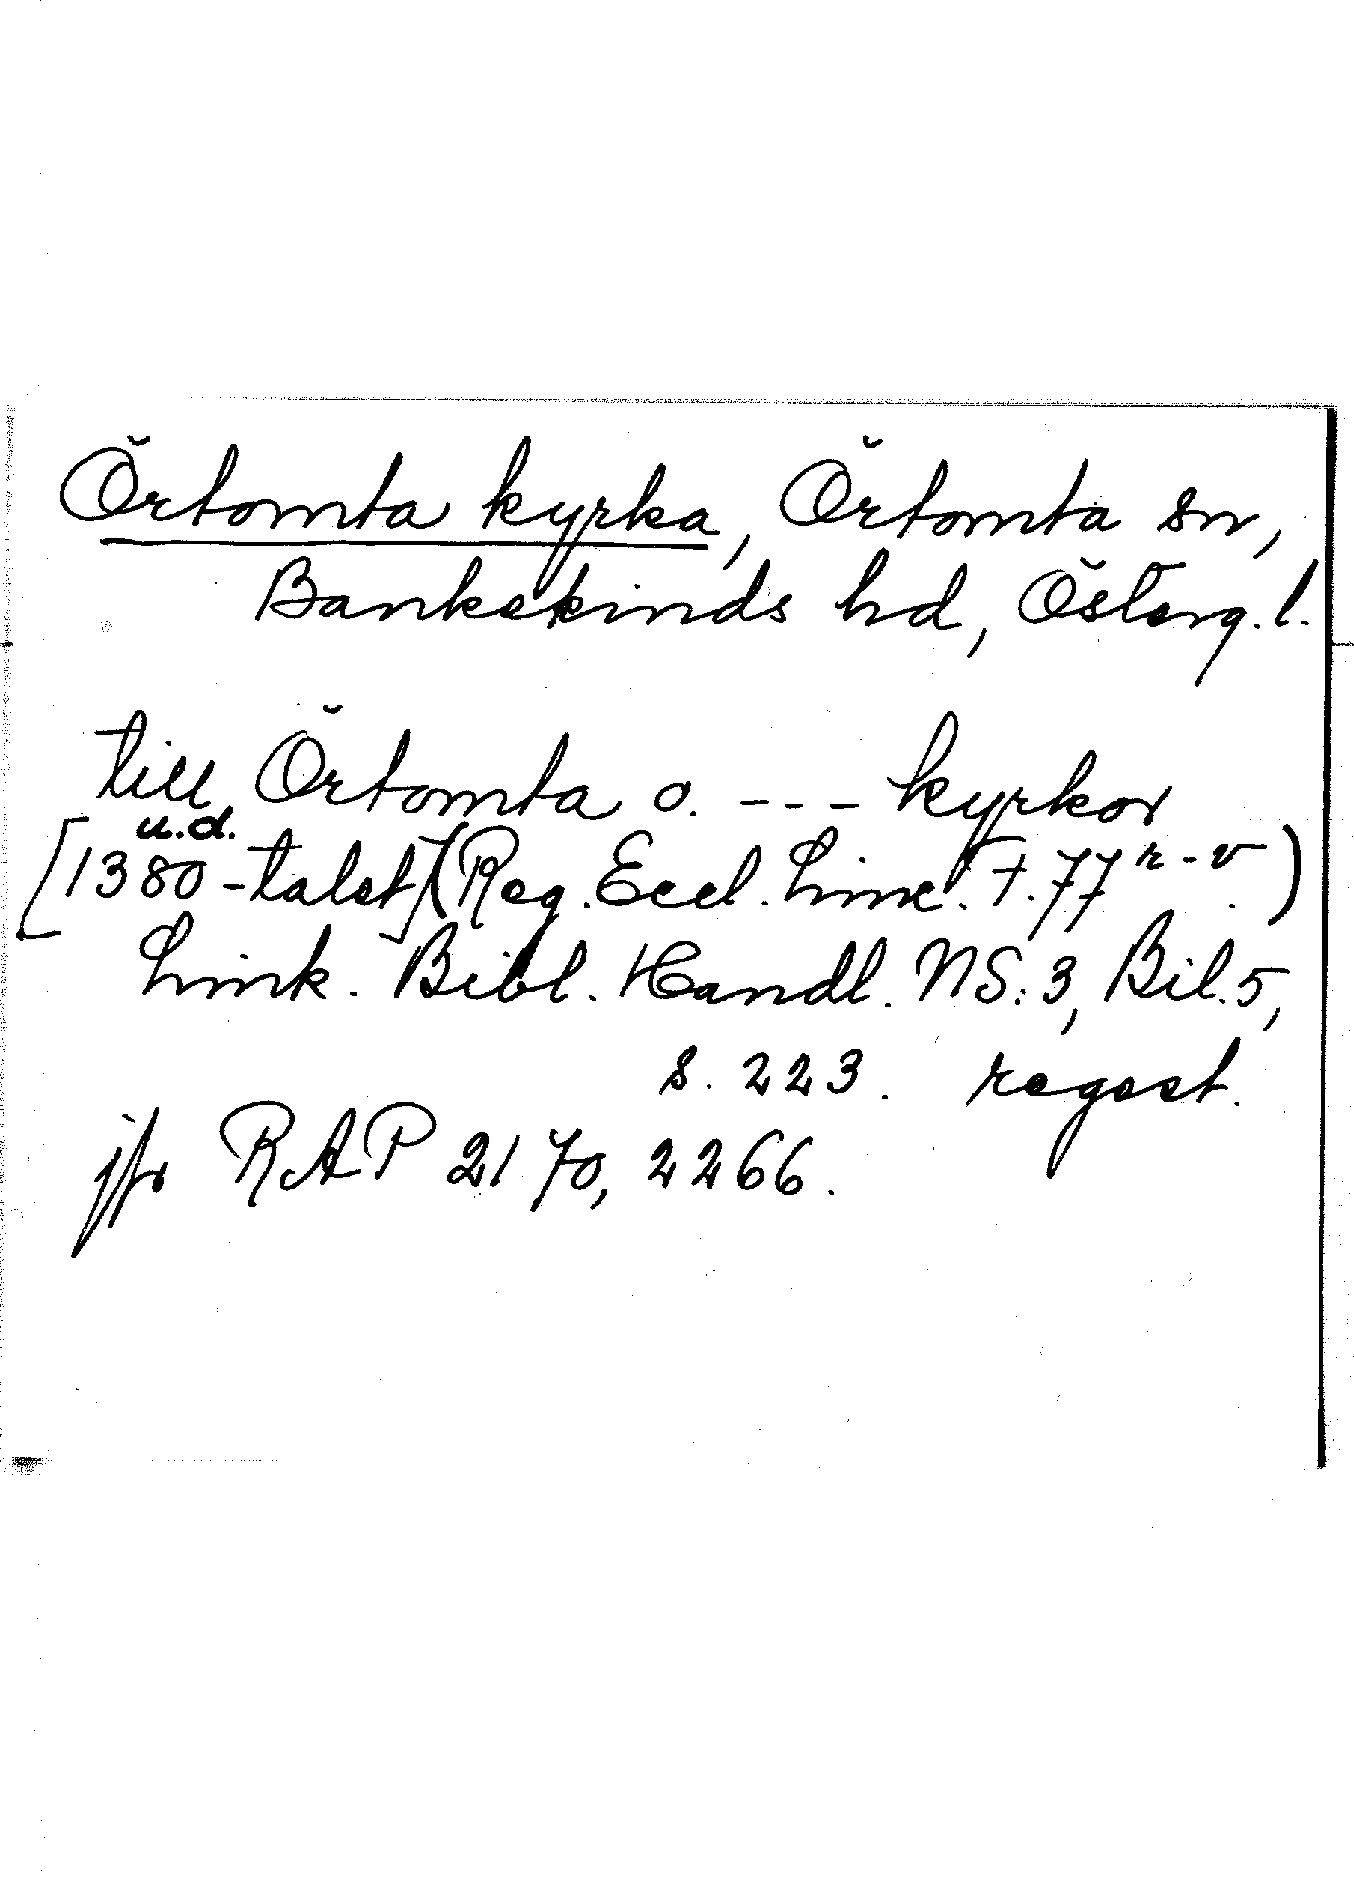 Örtomta kyrka, Örtomta sn,
Bankekinds hd, Österg.l.
till Örtomta o. --- kyrkor
u.d.
[1380-talet] (Reg. Eccl. Linc. f. 77 r-v.)
Link. Bibl. Handl. NS: 3, Bil. 5,
s. 223. regest.
jfr RAP 2170, 2266.